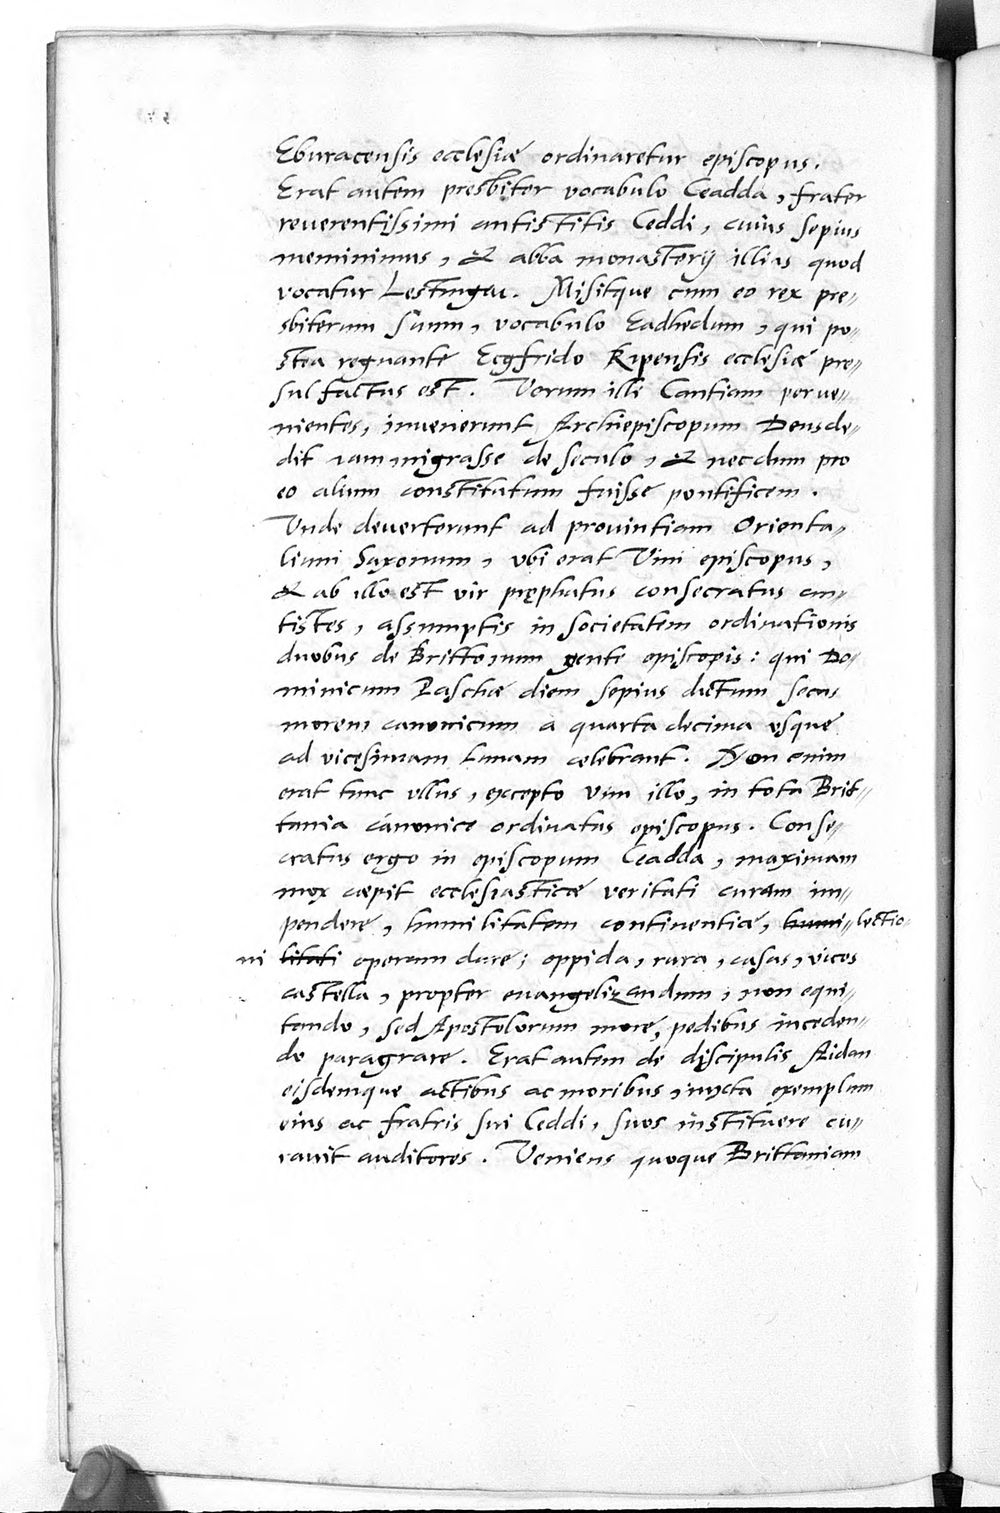 Eburacensis ecclesiæ ordinaretur episcopus.
Erat autem presbiter vocabulo Ceadda, frater
reverentissimi antistitis Ceddi, cuius sepius
meminimus, & abba monasterij illius quod
vocatur Lestingeu. Misitque cum eo rex pre-
sbiterum suum, vocabulo Eadhedum, qui po-
stea regnante Ecgfrido Ripensis ecclesiæ pre-
sul factus est. Verum illi Cantiam perve-
nientes, invenerunt Archiepiscopum Deusde-
dit iam migrasse de seculo, & necdum pro
eo alium constitutum fuisse pontificem.
Unde deverterunt ad provintiam Orienta-
lium Saxonum, ubi erat Vini episcopus,
& ab illo est vir pręphatus consecratus an-
tistes, assumptis in societatem ordinationis
duobus de Brittonum gente episcopis: qui Do-
minicum Paschæ diem sepius dictum secus
morem canonicum a quarta decima usque
ad vicesimam Lunam celebrant. Non enim
erat tunc ullus, excepto Vini illo, in tota Brit-
tania canonice ordinatus episcopus. Conse-
cratus ergo in episcopum Ceadda, maximam
mox cæpit ecclesiasticæ veritati curam im-
pendere, humilitatem continentiæ, humi- lectio-
ni litati operam dare; oppida, rura, casas, vicos
castella, propter evangelizandum, non equi-
tando, sed Apostolorum more, pedibus inceden-
do paragrare. Erat autem de discipulis Aidan
eisdemque actibus ac moribus, iuxta exemplum
eius ac fratris sui Ceddi, suos instituere cu-
ravit auditores. Veniens quoque Brittaniam